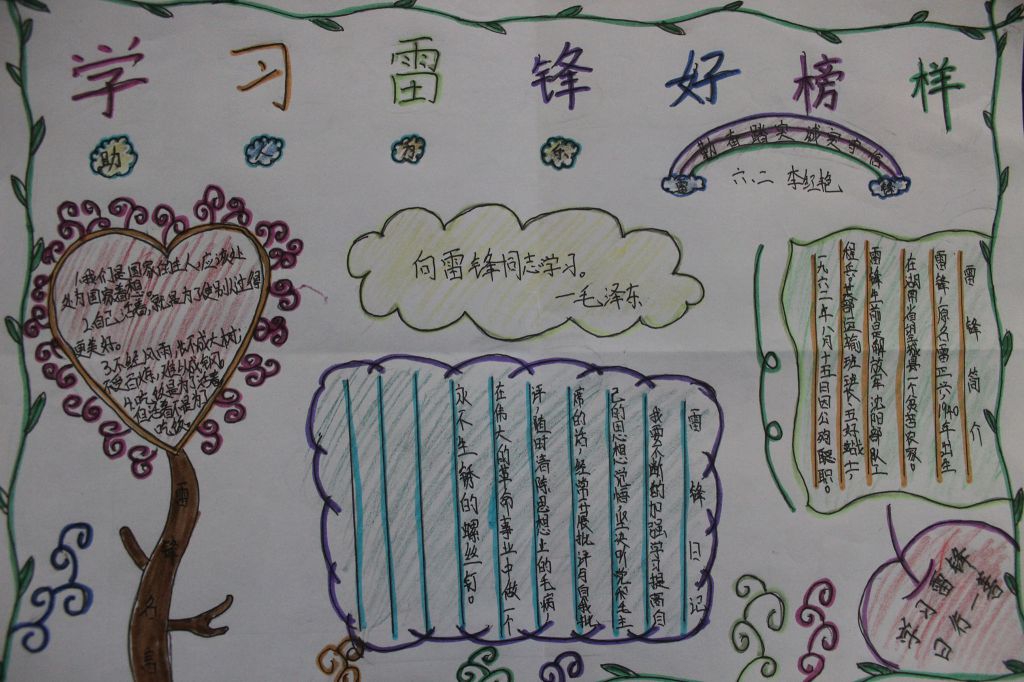 学习雷锋好榜样
助人为乐
勤奋踏实 诚实守信
雷 锋
六、二 李红艳
向雷锋同志学习。
—毛泽东
1.我们是国家的主人,应该处
处为国家着想
2.自己活着,就是为了使别人过得
更美好。
3.不经风雨,长不成大树;
不受百炼,难以成钢。
雷锋名言
雷锋日记
我要不断的加强学习提高自
己的思想觉悟坚决听党和毛主
席的话,经常开展批评与自我批
评,随时清除思想上的毛病,
在伟大的革命事业中做一个
永不生锈的螺丝钉。
雷锋简介
雷锋,原名雷正兴,1940年出生
在湖南省望城县一个贫苦农家。
雷锋生前是解放军沈阳部队工
程兵某部运输班班长五好战士,
一九六二年八月十五日因公殉职。
学习雷锋
日行一善